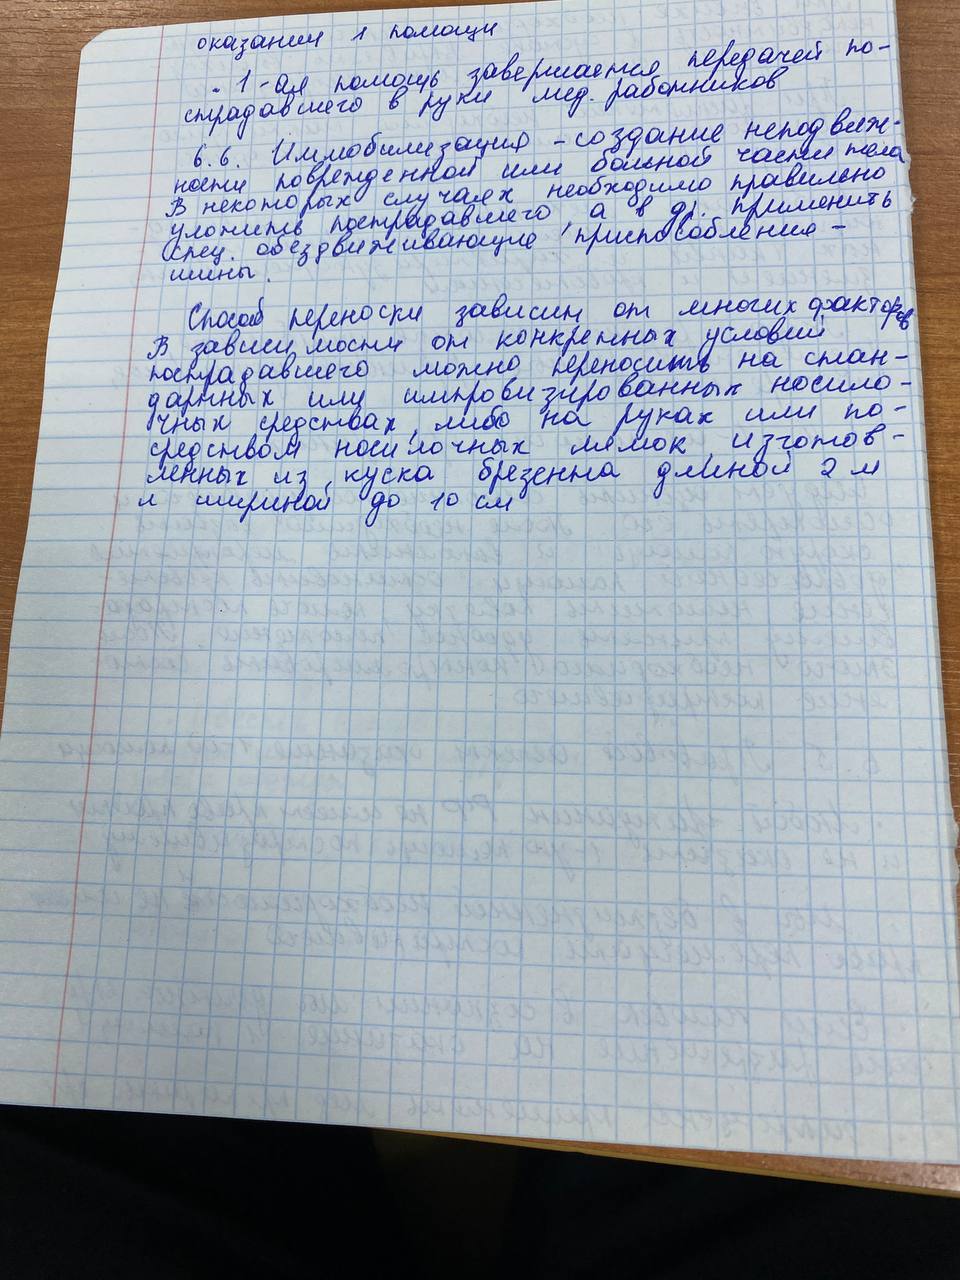 оказании 1 помощи
. 1-ая помощь завершается передачей по-
страдавшего в руки мед. работников
6.6. Иммобилизация - создание неподвиж-
ности поврежденной или больной части тела
В некоторых случаях необходимо правильно
уложить пострадавшего, а в др. применить
спец. обездвиживающие приспособления -
шины.
Способ переноски зависит от многих факторов
В зависимости от конкретных условий
пострадавшего можно переносить на стан-
дартных или импровизированных носило-
чных средствах, либо на руках или по-
средством носилочных лямок, изготов-
ленных из куска брезента длиной 2 м
и шириной до 10 см